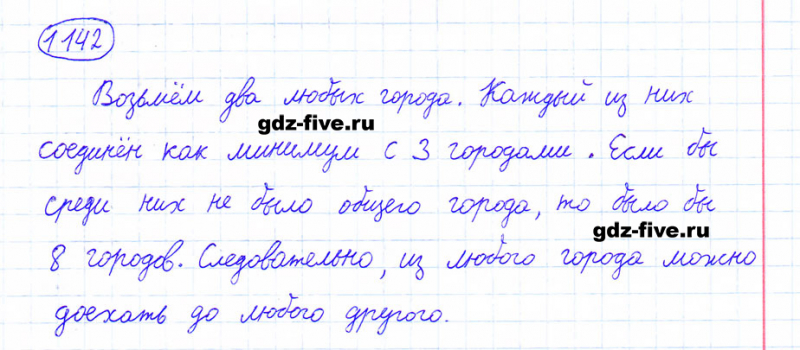 1142
Возьмём два любых города. Каждый из них
gdz-five.ru
соединён как минимум с 3 городами. Если бы
среди них не было общего города, то было бы
gdz-five.ru
8 городов. Следовательно, из любого города можно
доехать до любого другого.